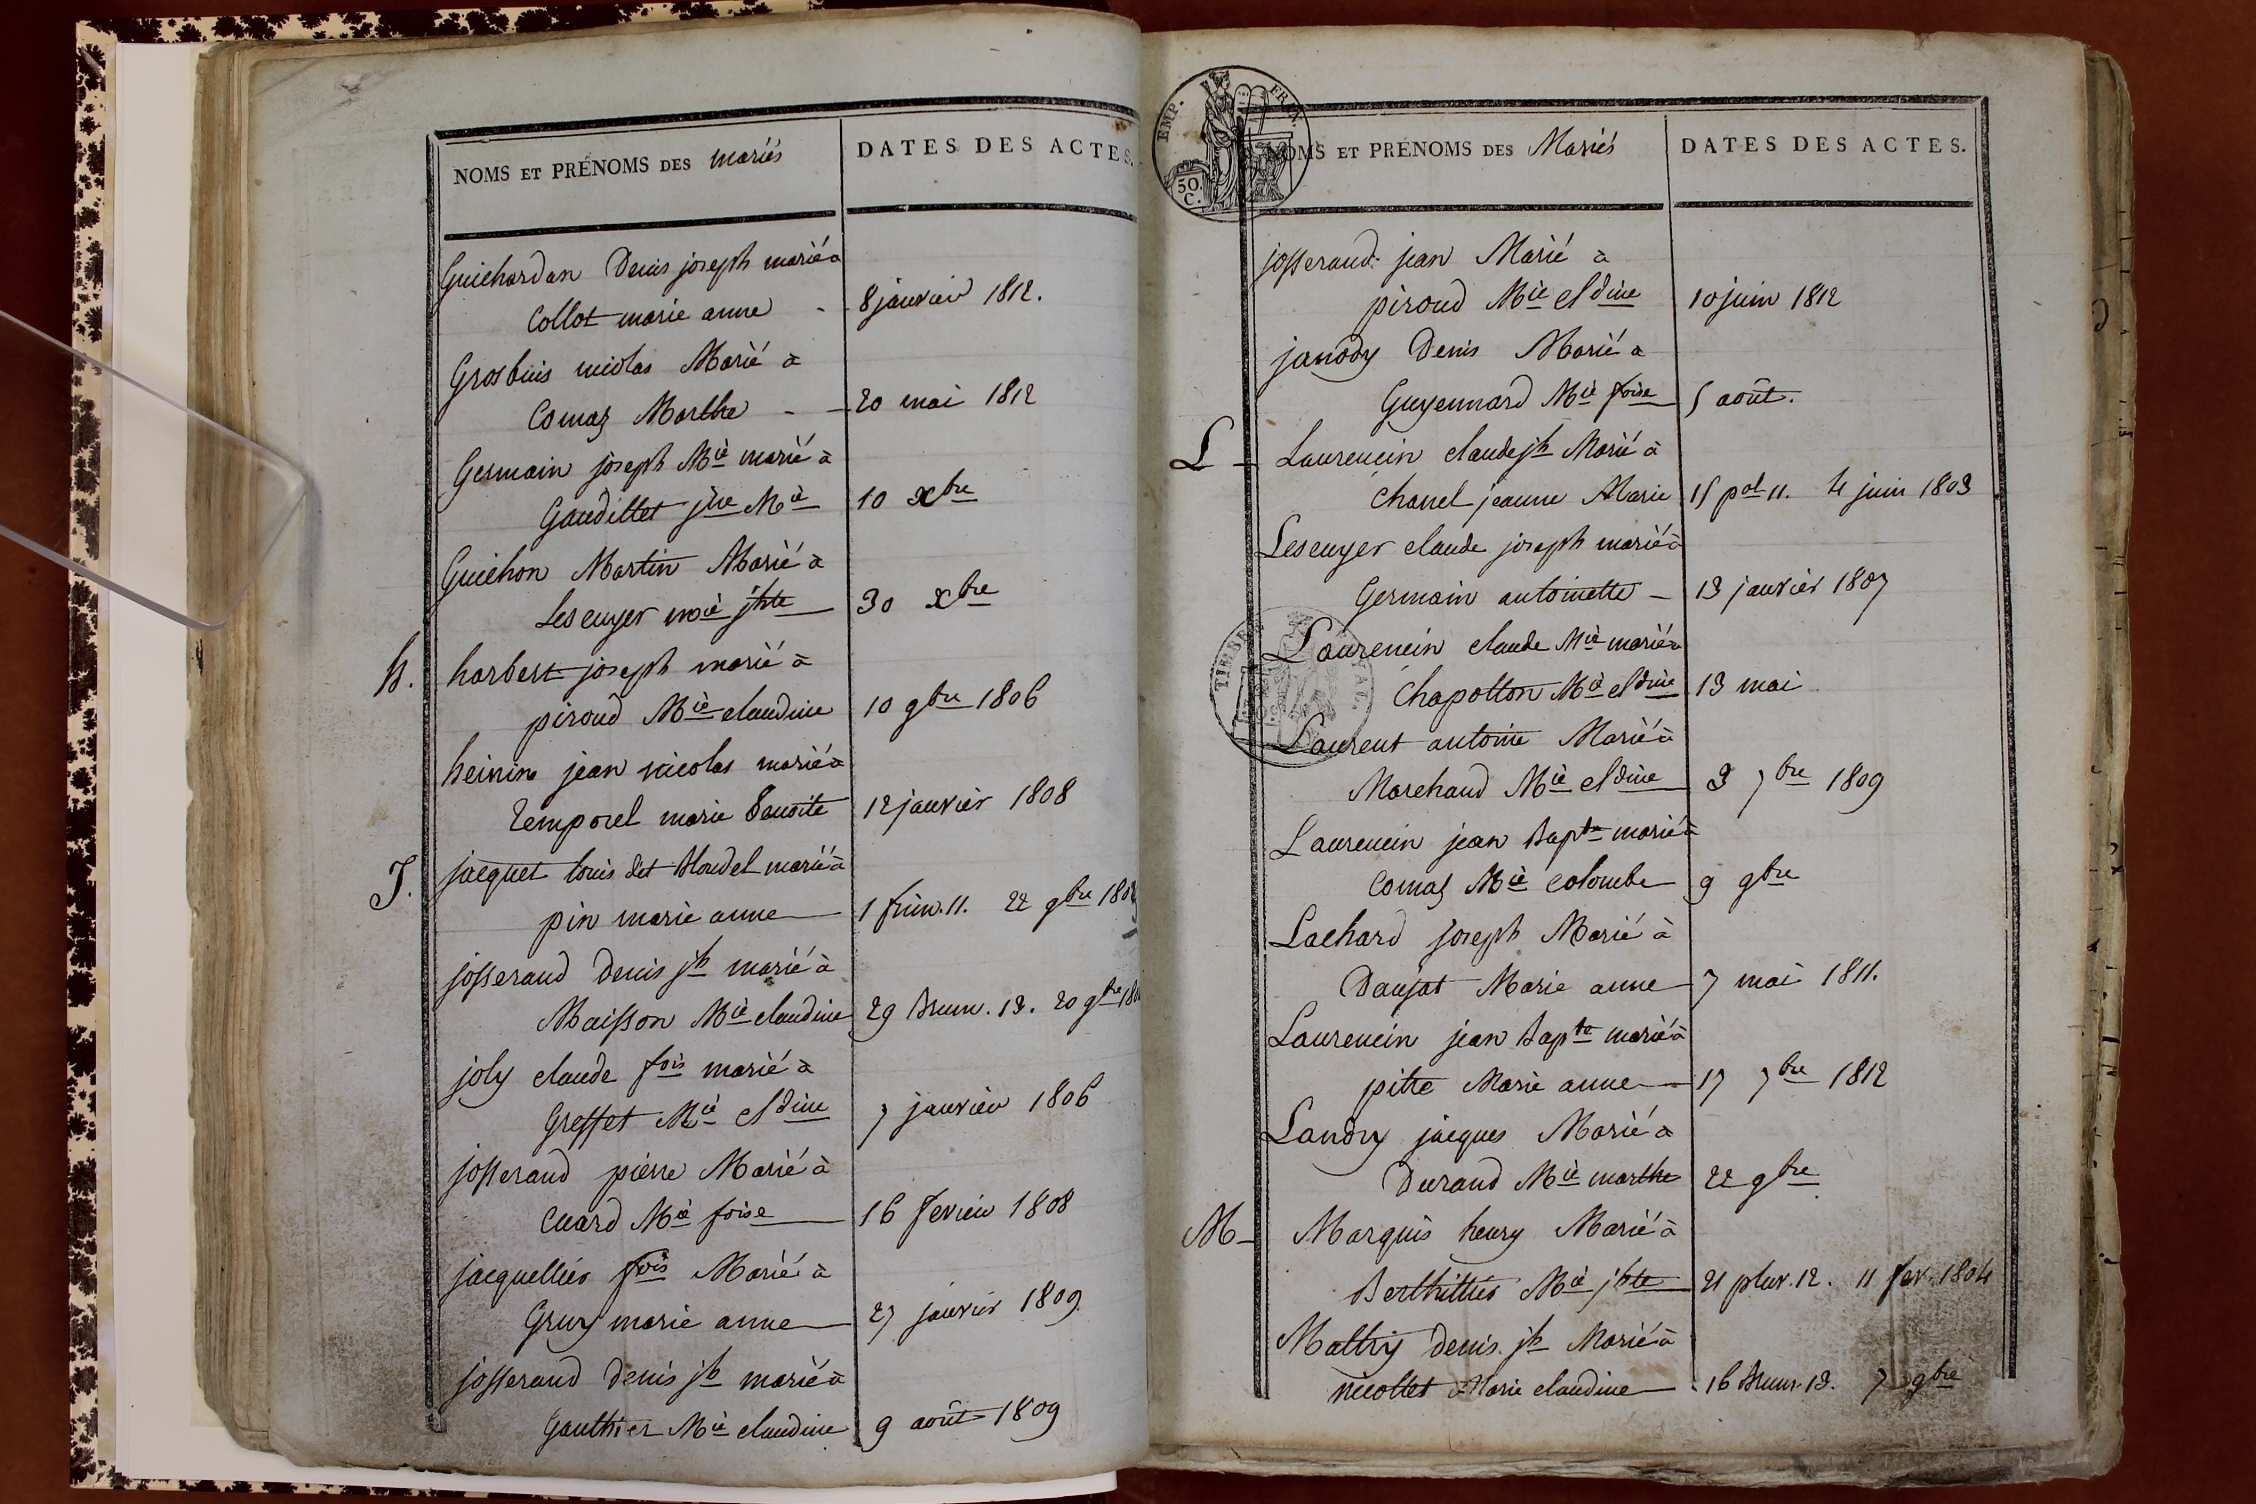 NOMS ET PRÉNOMS DES mariés
DATES DES ACTES.
Guichardan Denis joseph marié à
Collot marie anne - 8 janvier 1812.
Grosbuis nicolas Marié à
Comaz Marthe - - 20 mai 1812
Germain joseph Mie marié à
Gaudillet jne Mie 10 xbre
Guichon Martin Marié à
Lescuyer mie jhte 30 xbre
h. harbert joseph marié à
piroud Mie claudine 10 9bre 1806
heinin jean nicolas marié à
Temporel marie Benoite 12 janvier 1808
J. jacquet louis dit Bloudel marié à
pin marie anne 1 frim. 11. 22 9bre 180
josserand denis jh marié à
Maisson Mie claudine 29 Brum. 13. 20 9bre 180
joly claude fois marié à
Greffet Mie cldine 7 janvier 1806
josserand pierre Marié à
Cuard Mie foise 16 fevrier 1808
jacquellier fois Marié à
Gruy marie anne 27 janvier 1809.
josserand denis jh marié à
Gauthier Mie claudine 9 août 1809
EMP. FRAN.
50. C.
NOMS ET PRÉNOMS DES Mariés
DATES DES ACTES.
josserand jean Marié à
piroud Mie cldine 10 juin 1812
janody Denis Marié à
Guyennard Mie foise 5 août.
L - Laurencin claude jh Marié à
Chanel jeanne Marie 15 pal 11. 4 juin 1803
Lescuyer claude joseph marié à
Germain antoinette - 13 janvier 1807
TIMBRE
Laurencin claude Mie marié à
Chapotton Mie cldine 13 mai
Laurent antoine Marié à
Marchand Mie cldine 3 7bre 1809
Laurencin jean Bapte marié à
Comaz Mie Colombe 9 9bre
Lachard joseph Marié à
Daujat Marie anne 7 mai 1811.
Laurencin jean Bapte marié à
pitre Marie anne 17 7bre 1812
Landry jacques Marié à
Durand Mie marthe 22 9bre
M - Marquis henry Marié à
Berthillier Mie jhte 21 pluv. 12. 11 fev. 1804
Mathy denis jh Marié à
nicollet Marie claudine 16 Brum. 13. 7 9bre